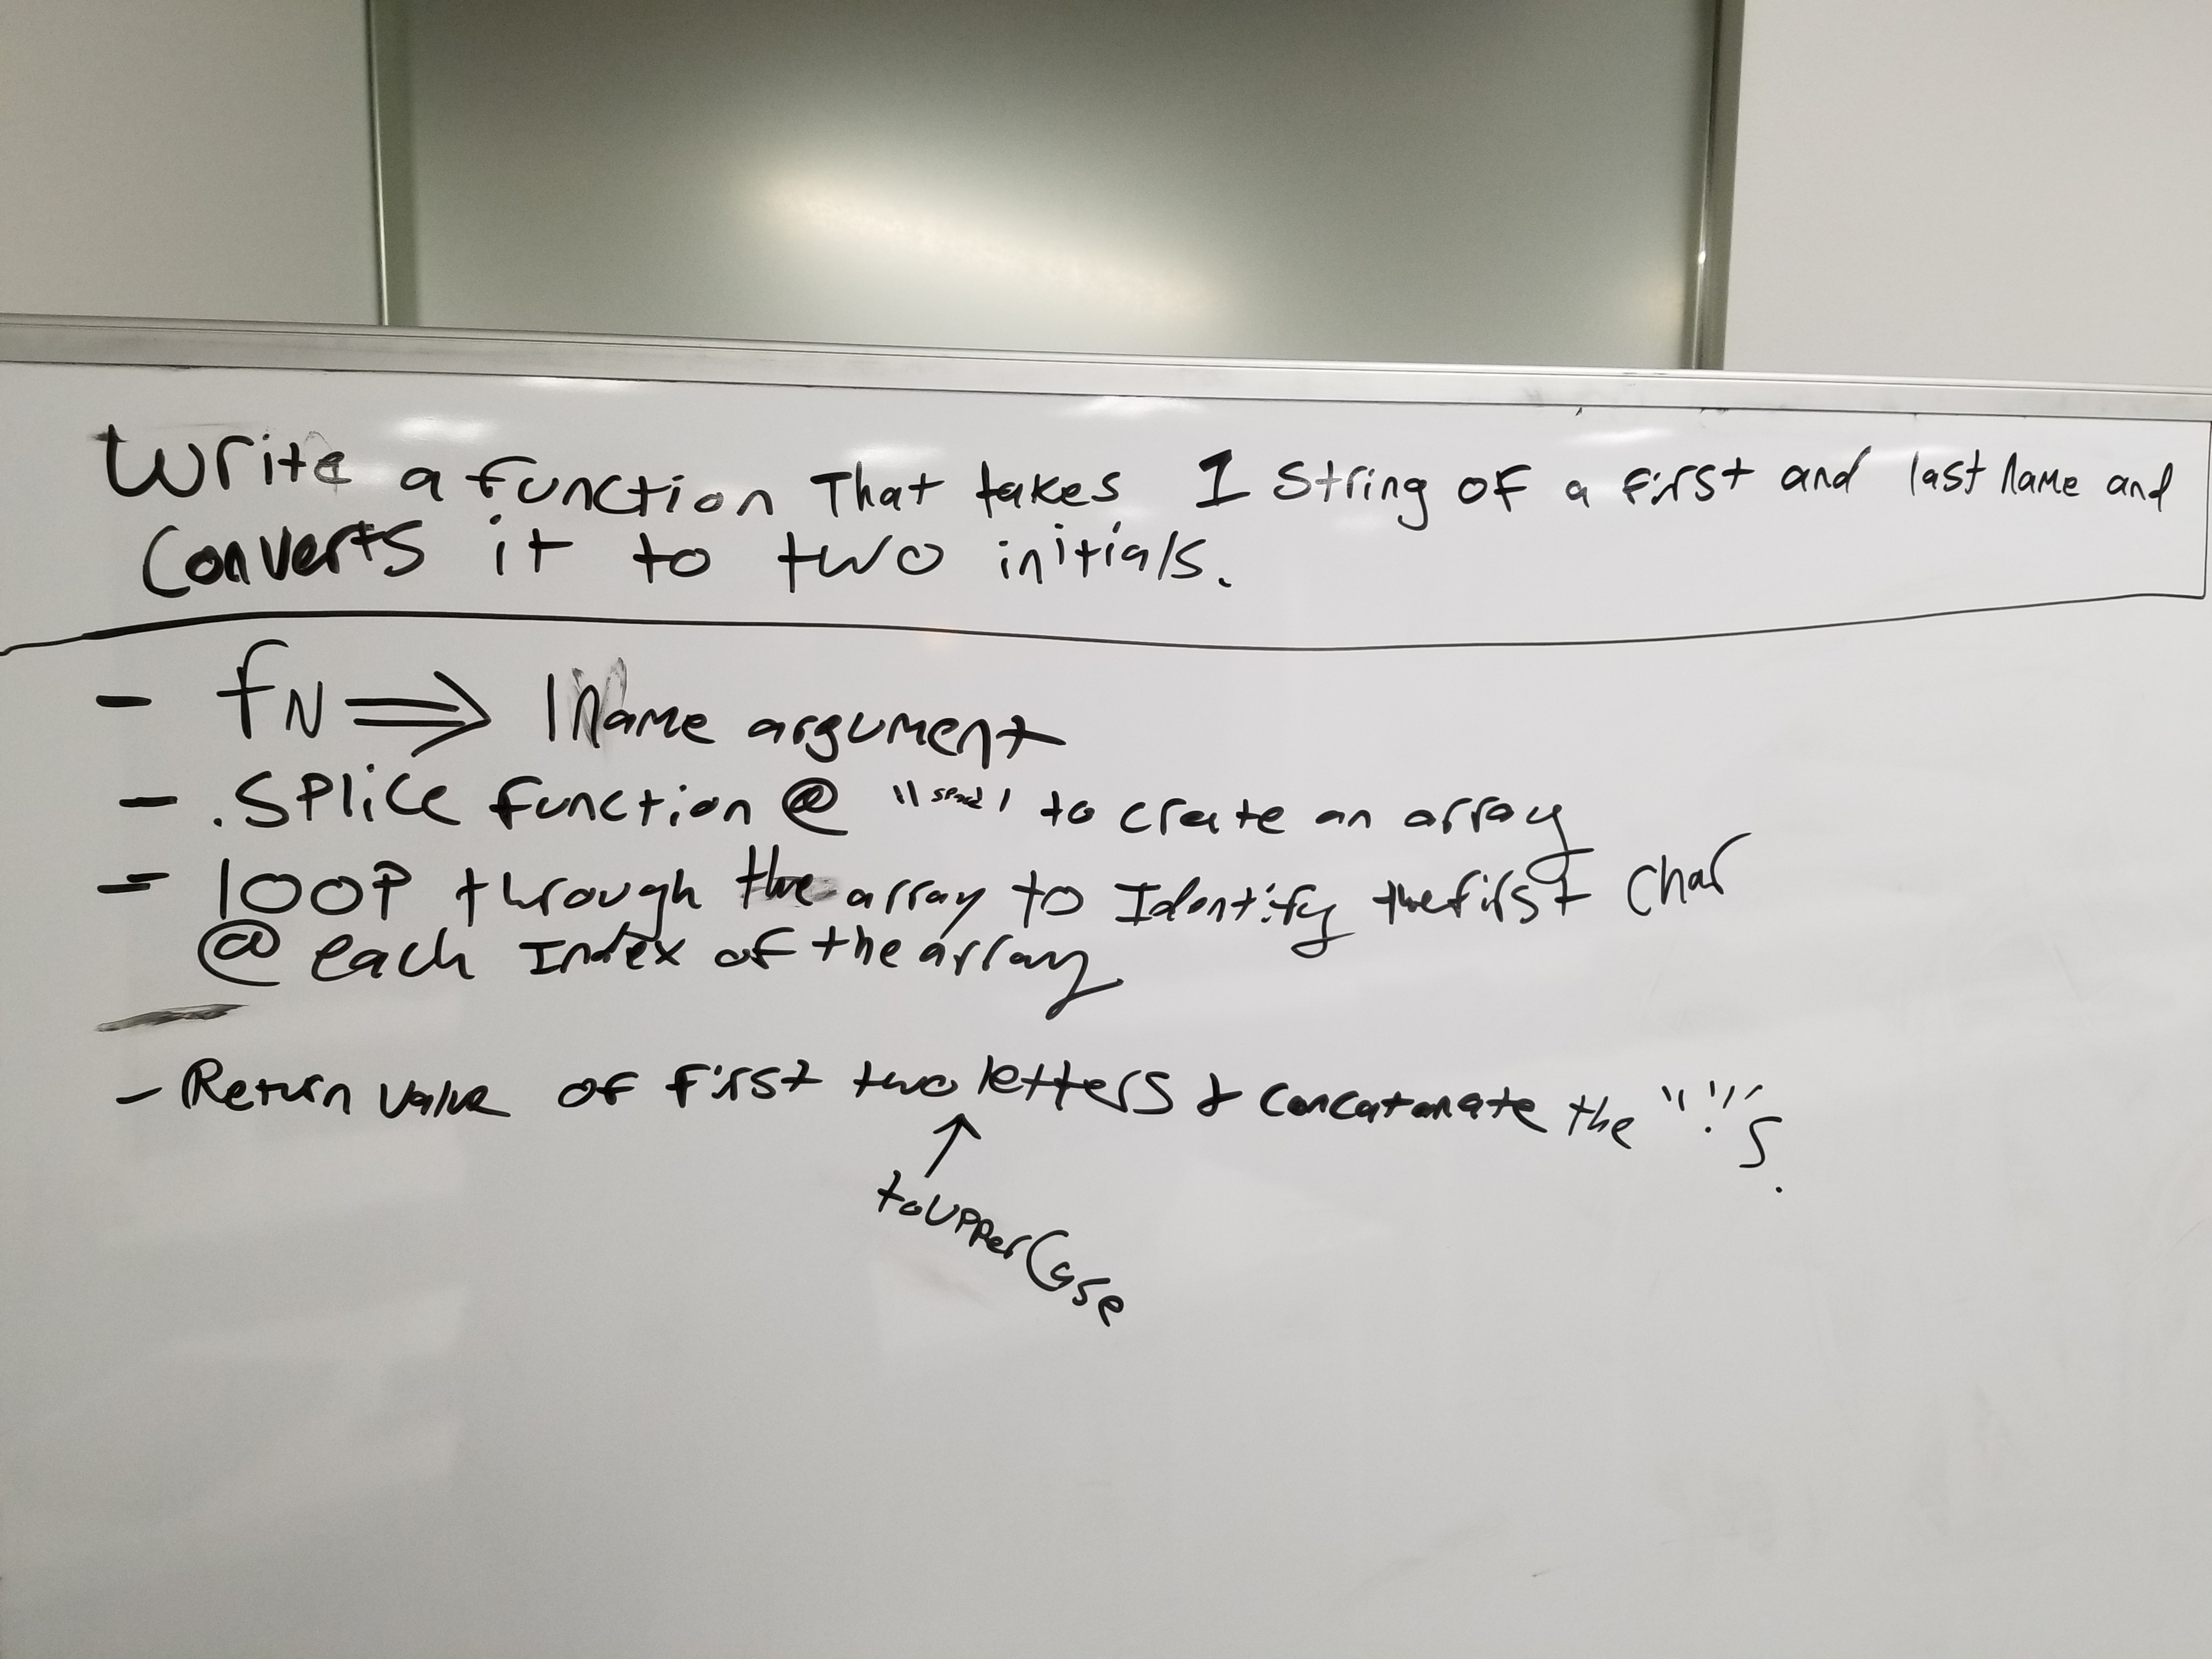 Write a function That takes 1 String of a first and last name and
Converts it to two initials.
- fN ⇒ 1 Name argument
- .Splice function @ "space" to create an array
- loop through the array to Identify the first Char
@ each Index of the array
- Return Value of first two letters & concatanate the "."s.
toUpperCase